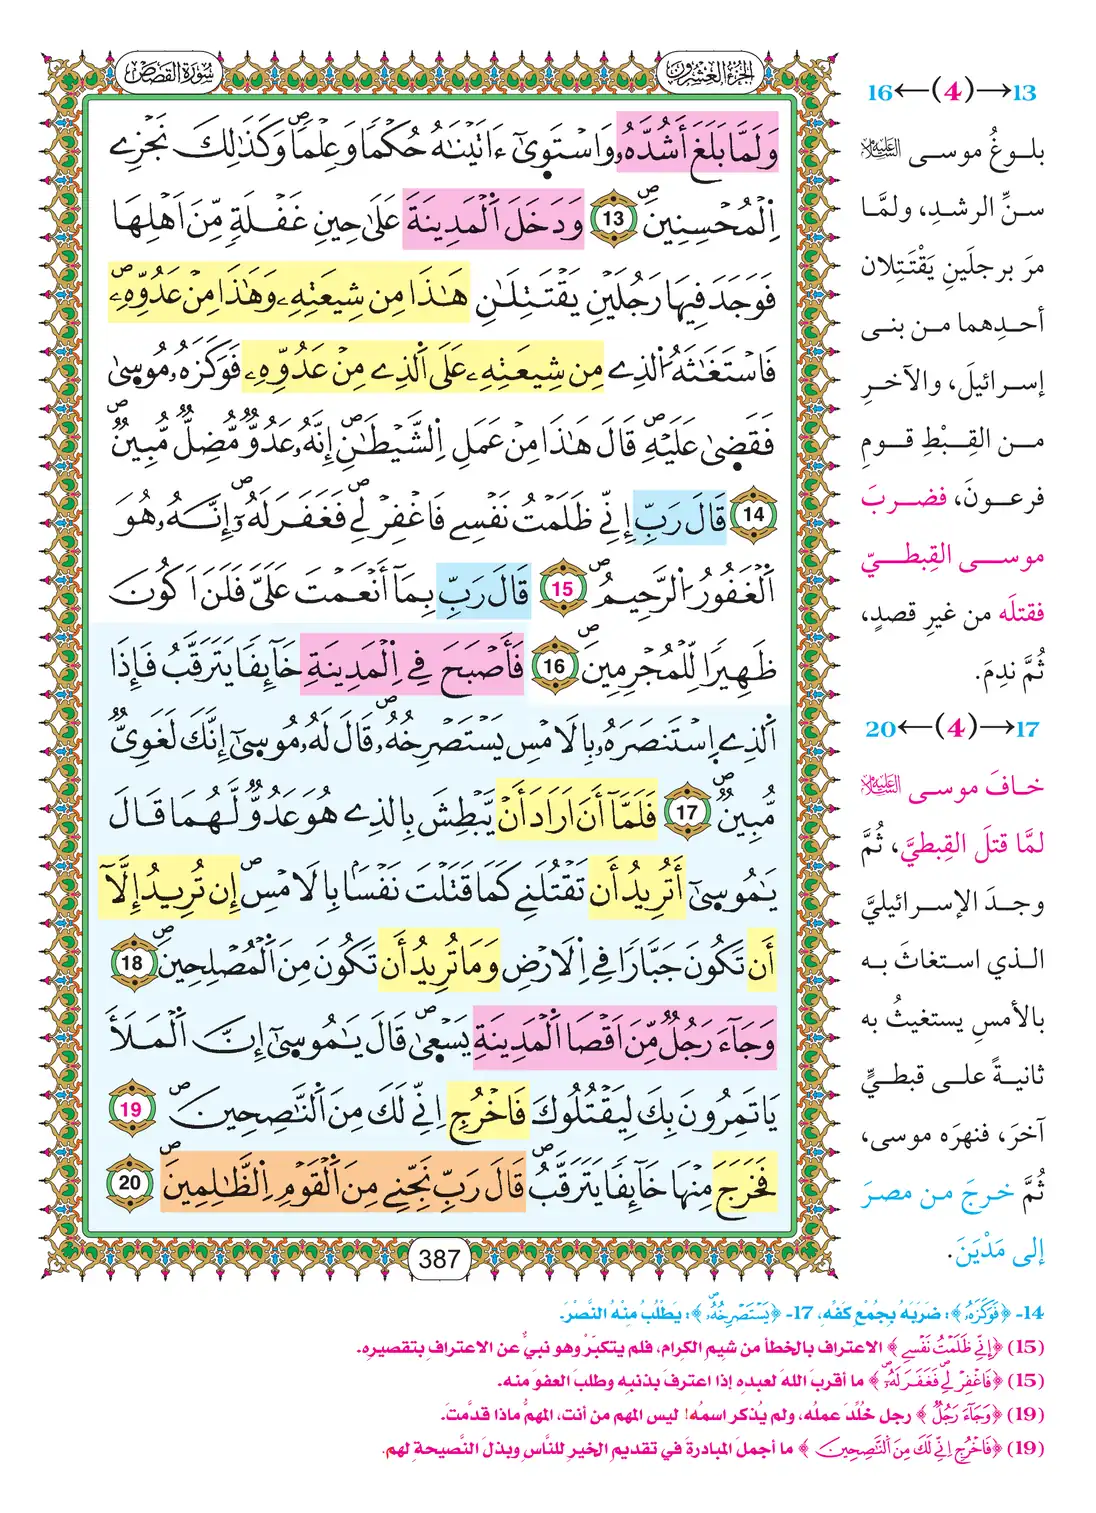 الجزء العشرون
سورة القصص
وَلَمَّا بَلَغَ أَشُدَّهُۥ وَاسْتَوۭىٰٓ ءَاتَيْنَٰهُ حُكْمٗا وَعِلْمٗاۖ وَكَذَٰلِكَ نَجْزِے
اِ۬لْمُحْسِنِينَۖ 13 وَدَخَلَ اَ۬لْمَدِينَةَ عَلَىٰ حِينِ غَفْلَةٖ مِّنَ اَهْلِهَا
فَوَجَدَ فِيهَا رَجُلَيْنِ يَقْتَتِلَٰنِ هَٰذَا مِن شِيعَتِهِۦ وَهَٰذَا مِنْ عَدُوِّهِۦۖ
فَاسْتَغَٰثَهُ اُ۬لذِے مِن شِيعَتِهِۦ عَلَى اَ۬لذِے مِنْ عَدُوِّهِۦ فَوَكَزَهُۥ مُوسۭىٰ
فَقَضۭىٰ عَلَيْهِۖ قَالَ هَٰذَا مِنْ عَمَلِ اِ۬لشَّيْطَٰنِۖ إِنَّهُۥ عَدُوّٞ مُّضِلّٞ مُّبِينٞۖ
14 قَالَ رَبِّ إِنِّے ظَلَمْتُ نَفْسِے فَاغْفِرْ لِےۖ فَغَفَرَ لَهُۥٓۖ إِنَّهُۥ هُوَ
اَ۬لْغَفُورُ اُ۬لرَّحِيمُۖ 15 قَالَ رَبِّ بِمَآ أَنْعَمْتَ عَلَيَّ فَلَنَ اَكُونَ
ظَهِيراٗ لِّلْمُجْرِمِينَۖ 16 فَأَصْبَحَ فِے اِ۬لْمَدِينَةِ خَآئِفاٗ يَتَرَقَّبُ فَإِذَا
اَ۬لذِے اِ۪سْتَنصَرَهُۥ بِالَامْسِ يَسْتَصْرِخُهُۥۖ قَالَ لَهُۥ مُوسۭىٰٓ إِنَّكَ لَغَوِيّٞ
مُّبِينٞۖ 17 فَلَمَّآ أَنَ اَرَادَ أَنْ يَّبْطِشَ بِالذِے هُوَ عَدُوّٞ لَّهُمَا قَالَ
يَٰمُوسۭىٰٓ أَتُرِيدُ أَن تَقْتُلَنِے كَمَا قَتَلْتَ نَفْساَۢ بِالَامْسِۖ إِن تُرِيدُ إِلَّآ
أَن تَكُونَ جَبَّاراٗ فِے اِ۬لَارْضِ وَمَا تُرِيدُ أَن تَكُونَ مِنَ اَ۬لْمُصْلِحِينَۖ 18
وَجَآءَ رَجُلٞ مِّنَ اَقْصَا اَ۬لْمَدِينَةِ يَسْعۭىٰۖ قَالَ يَٰمُوسۭىٰٓ إِنَّ اَ۬لْمَلَأَ
يَاتَمِرُونَ بِكَ لِيَقْتُلُوكَ فَاخْرُجِ اِنِّے لَكَ مِنَ اَ۬لنَّٰصِحِينَۖ 19
فَخَرَجَ مِنْهَا خَآئِفاٗ يَتَرَقَّبُۖ قَالَ رَبِّ نَجِّنِے مِنَ اَ۬لْقَوْمِ اِ۬لظَّٰلِمِينَۖ 20
387
13→(4)←16
بلوغُ موسى عليه السلام
سنِّ الرشدِ، ولمَّا
مرَ برجلَينِ يَقْتَتِلان
أحدِهما من بنى
إسرائيلَ، والآخرِ
من القِبْطِ قومِ
فرعونَ، فضربَ
موسى القِبطيّ
فقتلَه من غيرِ قصدٍ،
ثُمَّ ندِمَ.
17→(4)←20
خافَ موسى عليه السلام
لمَّا قتلَ القِبطيَّ، ثُمَّ
وجدَ الإسرائيليَّ
الذي استغاثَ به
بالأمسِ يستغيثُ به
ثانيةً على قبطيٍّ
آخرَ، فنهرَه موسى،
ثُمَّ خرجَ من مصرَ
إلى مَدْيَنَ.
14- ﴿فَوَكَزَهُۥ﴾: ضَرَبَهُ بِجُمْعِ كَفِّهِ، 17- ﴿يَسْتَصْرِخُهُۥۖ﴾: يَطْلُبُ مِنْهُ النَّصْرَ.
(15) ﴿إِنِّے ظَلَمْتُ نَفْسِے﴾ الاعتراف بالخطأ من شِيَمِ الكرام، فلم يتكبَّرْ وهو نبيٌّ عن الاعترافِ بتقصيرِه.
(15) ﴿فَاغْفِرْ لِےۖ فَغَفَرَ لَهُۥٓۖ﴾ ما أقربَ اللهَ لعبدِه إذا اعترفَ بذنبِه وطلبَ العفوَ منه.
(19) ﴿وَجَآءَ رَجُلٞ﴾ رجل خُلِّدَ عملُه، ولم يُذكر اسمُه! ليس المهم من أنت، المهمُّ ماذا قدَّمتَ.
(19) ﴿فَاخْرُجِ اِنِّے لَكَ مِنَ اَ۬لنَّٰصِحِينَۖ﴾ ما أجملَ المبادرةَ في تقديمِ الخيرِ للنَّاسِ وبذلَ النَّصيحةِ لهم.